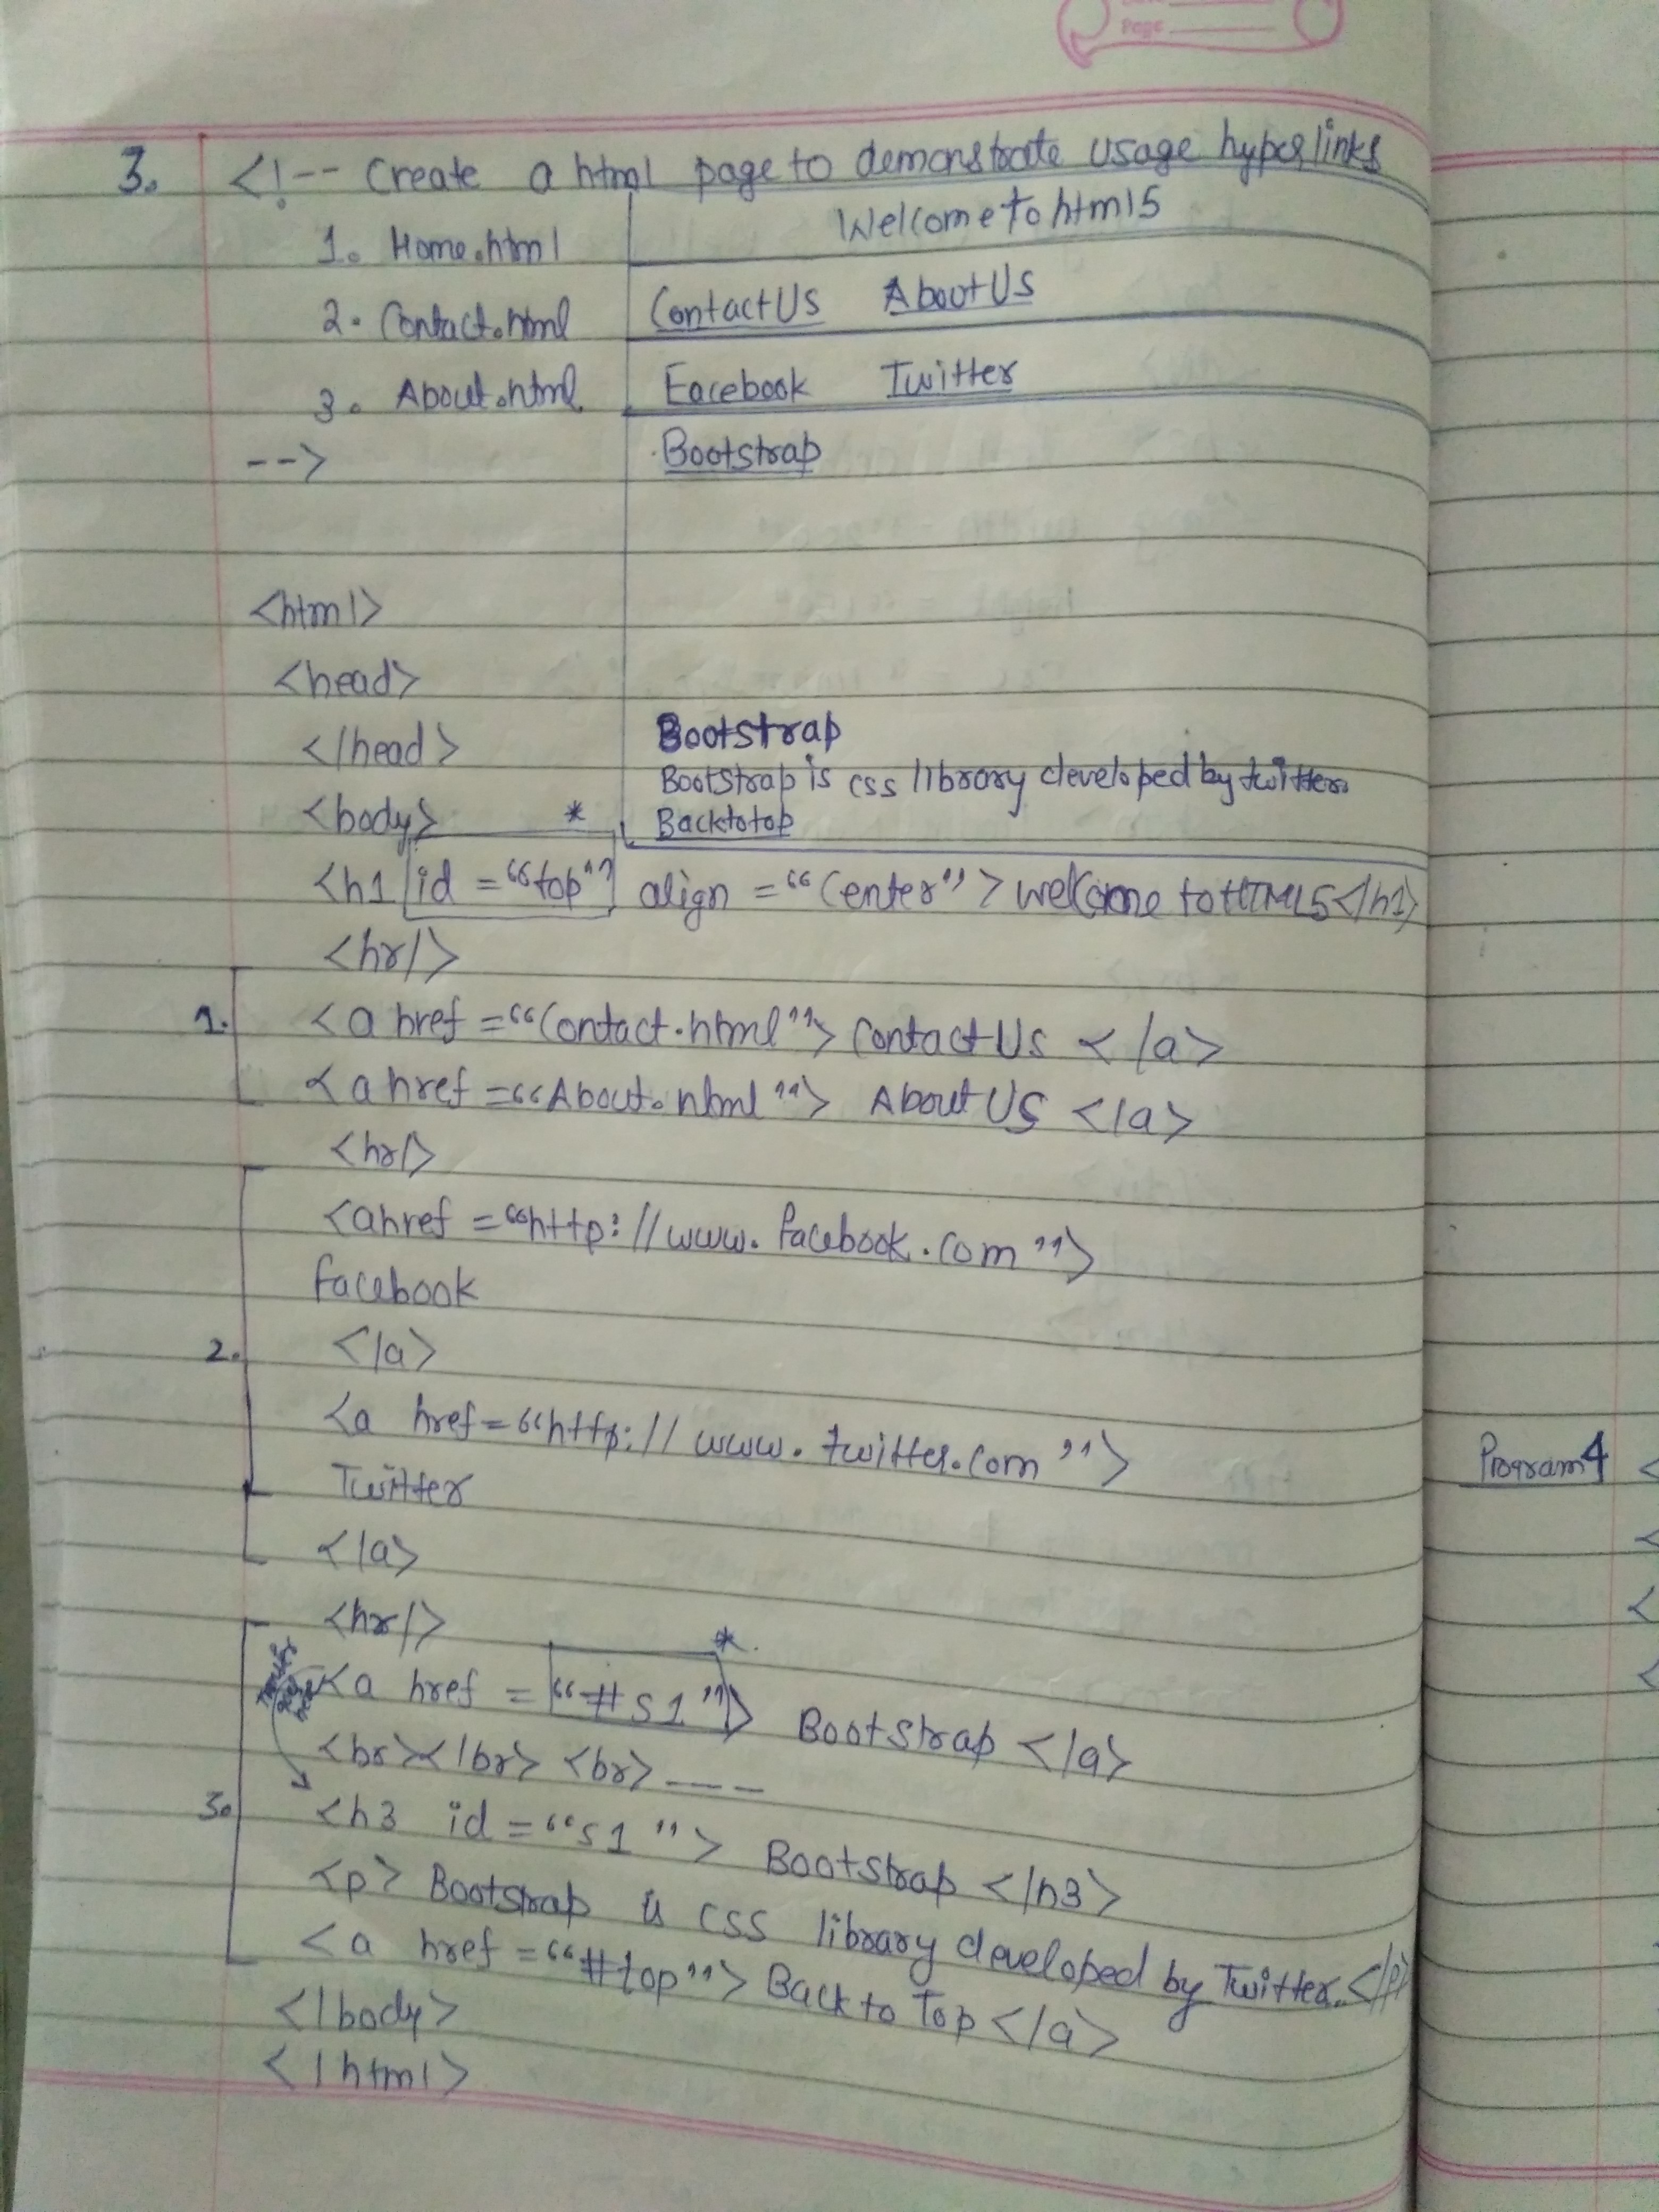 Page
3. <!-- Create a html page to demonstrate usage hyperlinks
1. Home.html
2. Contact.html
3. About.html
-->
Welcome to html5
ContactUs AboutUs
Facebook Twitter
Bootstrap
Bootstrap
Bootstrap is css library developed by twitter.
Backtotop
<html>
<head>
</head>
<body> *
<h1 id = "top" align = "Center" > Welcome to HTML5</h1>
<hr/>
1. <a href = "Contact.html"> Contact Us </a>
<a href = "About.html"> About Us </a>
<hr/>
<a href = "http://www.facebook.com">
facebook
2. </a>
<a href = "http://www.twitter.com">
Twitter
</a>
<hr/>
*
<a href = "#s1"> Bootstrap </a>
<br></br> <br> ---
3. <h3 id = "s1"> Bootstrap </h3>
<p> Bootstrap is CSS library developed by Twitter.</p>
<a href = "#top"> Back to Top </a>
</body>
</html>
Program 4 <
<
<
<